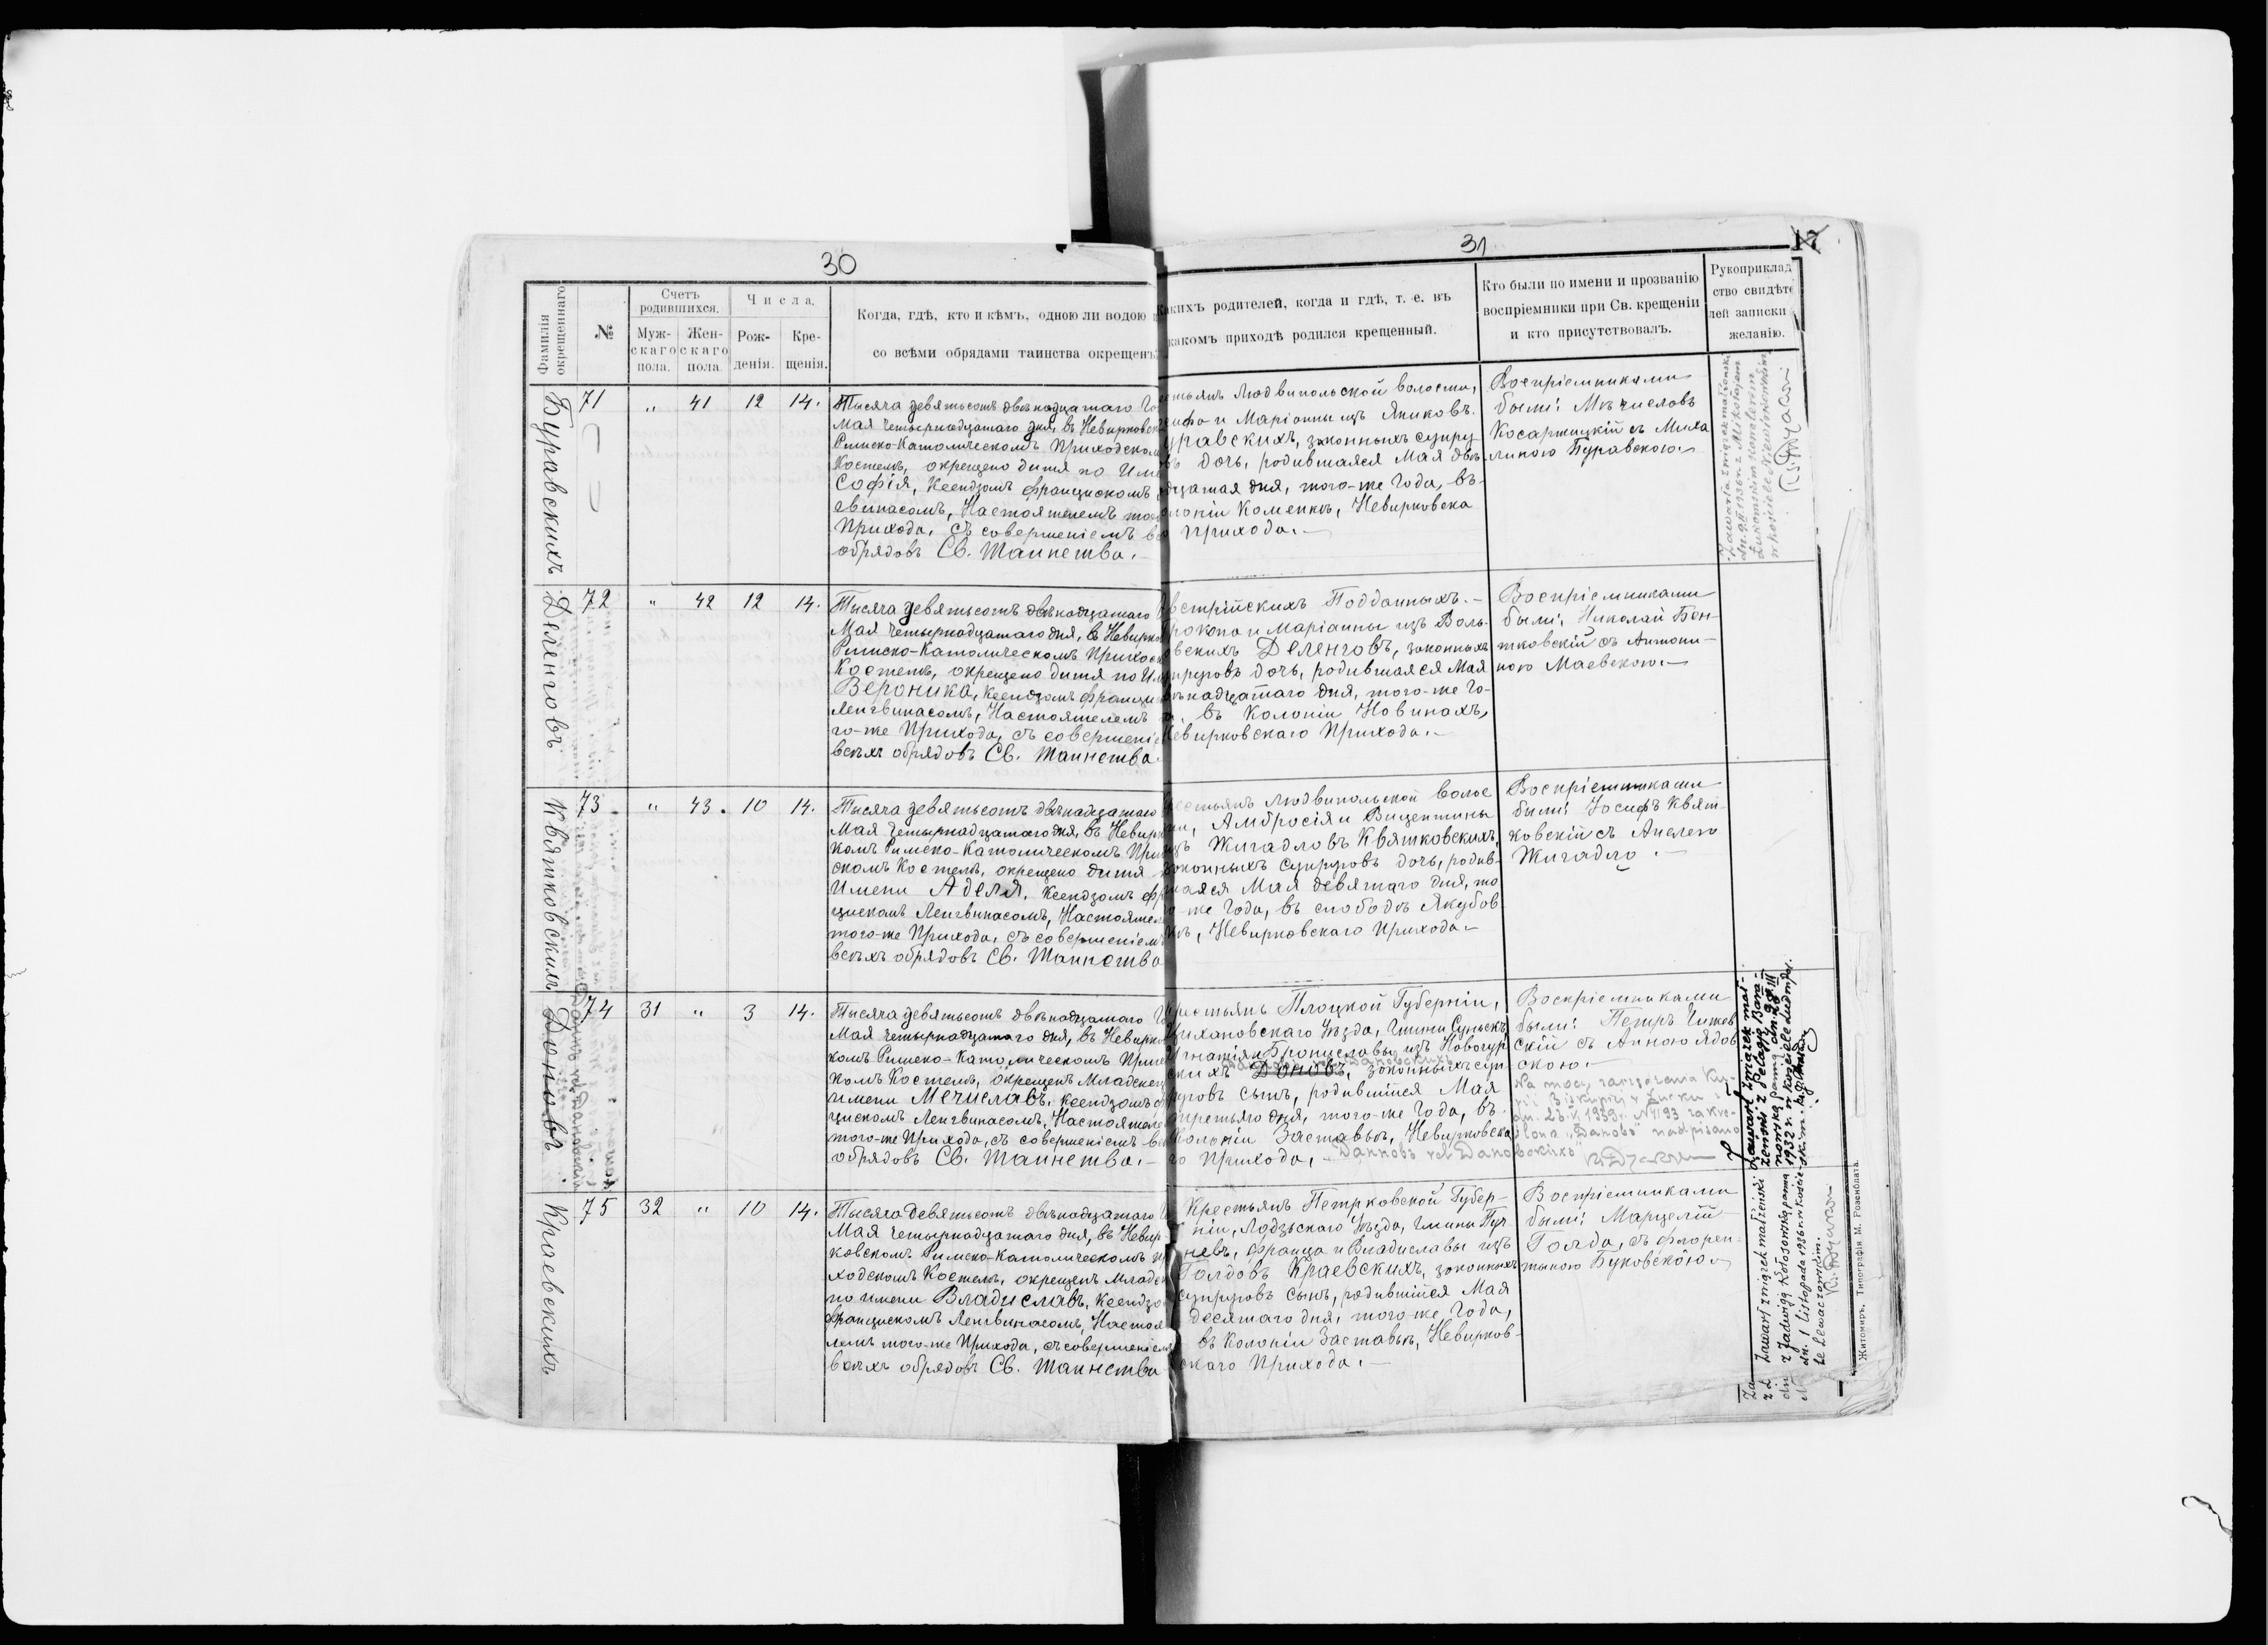 30
Фамилія окрещеннаго
№
Счетъ родившихся.
Муж-
скаго
пола.
Жен-
скаго
пола.
Числа,
Рож-
денія.
Кре-
щенія.
Когда, гдѣ, кто и кѣмъ, одною ли водою
со всѣми обрядами таинства окрещенъ
31
17
какихъ родителей, когда и гдѣ, т. е. въ
какомъ приходѣ родился крещенный.
Кто были по имени и прозванію
воспріемники при Св. крещеніи
и кто присутствовалъ.
Рукоприклад
ство свидѣте
лей записки
желанію.
Буравскихъ
71 " 41 12 14.
Тысяча девятьсотъ двѣнадцатаго Го
Мая четырнадцатаго дня, въ Невирковск
Римско-Католическомъ Приходском
Костелѣ, окрещено дитя по Име
Софія, Ксендзомъ Францискомъ
гвинасомъ, Настоятелемъ того
Прихода, съ совершеніемъ вс
обрядовъ Св. Таинства.–
стьянъ Людвипольской волости,
сифа и Маріанны изъ Яниковъ
уравскихъ, законныхъ супру-
въ дочь, родившаяся Мая двѣ-
дцатая дня, того-же Года, въ
олоніи Коменкѣ, Невирковска
Прихода.–
Воспріемниками
были: Мѣчиславъ
Косаржицкій съ Миха
линою Буравскою.–
Zawarła związek małżeński
dn. 9.II.1936 r. z Mikołajem
w kościele Newirkowskim
Деленговъ
72 " 42 12 14.
Тысяча девятьсотъ двѣнадцатаго
Мая четырнадцатаго дня, въ Невирко
Римско-Католическомъ Приход
Костелѣ, окрещено дитя по И
Вероника, Ксендзомъ Франци
Ленгвинасомъ, Настоятелемъ
го-же Прихода, съ совершеніе
всѣхъ обрядовъ Св. Таинства.
встрійскихъ Подданныхъ.–
рокопа и Маріанны изъ Воль-
овскихъ Деленговъ, законныхъ
упруговъ дочь, родившаяся Мая
ѣнадцатаго дня, того-же Го-
въ Колоніи Новинахъ,
евирковскаго Прихода.–
Воспріемниками
были: Николай Бен-
тковскій съ Антони-
ною Маевскою.–
Квятковскихъ
73 " 43. 10 14.
Тысяча девятьсотъ двѣнадцатаго
Мая четырнадцатаго дня, въ Невир
комъ Римско-Католическомъ При
скомъ Костелѣ, окрещено дитя
Имени Аделя, Ксендзомъ Фр
цискомъ Ленгвинасомъ, Настояте
того-же Прихода, съ совершеніем
всѣхъ обрядовъ Св. Таинства
естьянъ Людвипольской волос
ти, Амбросія и Вицентины
изъ Жигадловъ Квятковскихъ,
законныхъ Супруговъ дочь, родив-
шаяся Мая девятаго дня, то
го-же Года, въ слободѣ Якубов
кѣ, Невирковскаго Прихода.–
Воспріемниками
были: Іосифъ Квят-
ковскій съ Анелею
Жигадло.–
Доновъ
74 31 " 3 14.
Тысяча девятьсотъ двѣнадцатаго Го
Мая четырнадцатаго дня, въ Невирко
комъ Римско-Католическомъ При
комъ Костелѣ, окрещенъ Младенец
имени Мечиславъ, Ксендзомъ
цискомъ Ленгвинасомъ, Настояте
того-же Прихода, съ совершеніемъ вс
обрядовъ Св. Таинства.–
Крестьянъ Плоцкой Губерніи,
Цихановскаго Уѣзда, Гмины Сунскъ
Игнатія и Брониславы изъ Новогур
скихъ Доновъ, законныхъ суп-
руговъ сынъ, родившійся Мая
третьяго дня, того-же Года, въ
Колоніи Заставьи, Невирковска
го Прихода.–
Данновъ vel Дановскихъ
Воспріемниками
были: Петръ Чижев
скій съ Анною Ядов
скою.–
Na mocy zarządzenia Ku-
rji Biskupiej w Łucku
nadpisano
Zawarł związek mał-
żeński z Pelagją
1932 r. w kościele Ludwipol-
skim.
Краевскихъ
75 32 " 10 14.
Тысяча девятьсотъ двѣнадцатаго
Мая четырнадцатаго дня, въ Невир-
ковскомъ Римско-Католическомъ
ходскомъ Костелѣ, окрещенъ Младен
по имени Владиславъ, Ксендзо
Францискомъ Ленгвинасомъ, Настоя
лемъ того-же Прихода, съ совершеніем
всѣхъ обрядовъ Св. Таинства
Крестьянъ Петрковской Губер-
ніи, Лодзьскаго Уѣзда, Гмины Пуч
невъ, Франца и Владиславы изъ
Голдовъ Краевскихъ, законныхъ
супруговъ сынъ, родившійся Мая
десятаго дня, того-же Года,
въ Колоніи Заставьи, Невирков-
скаго Прихода.–
Воспріемниками
были: Марцелій
Голда, съ Флорен-
тыною Буковскою.–
Zawarł związek małżeński
z Jadwigą Kołosowską panną
dn. 1 listopada 1936 r. w koście-
le Lewaczowskim.
Житомиръ, Типографія М. Розенблата.